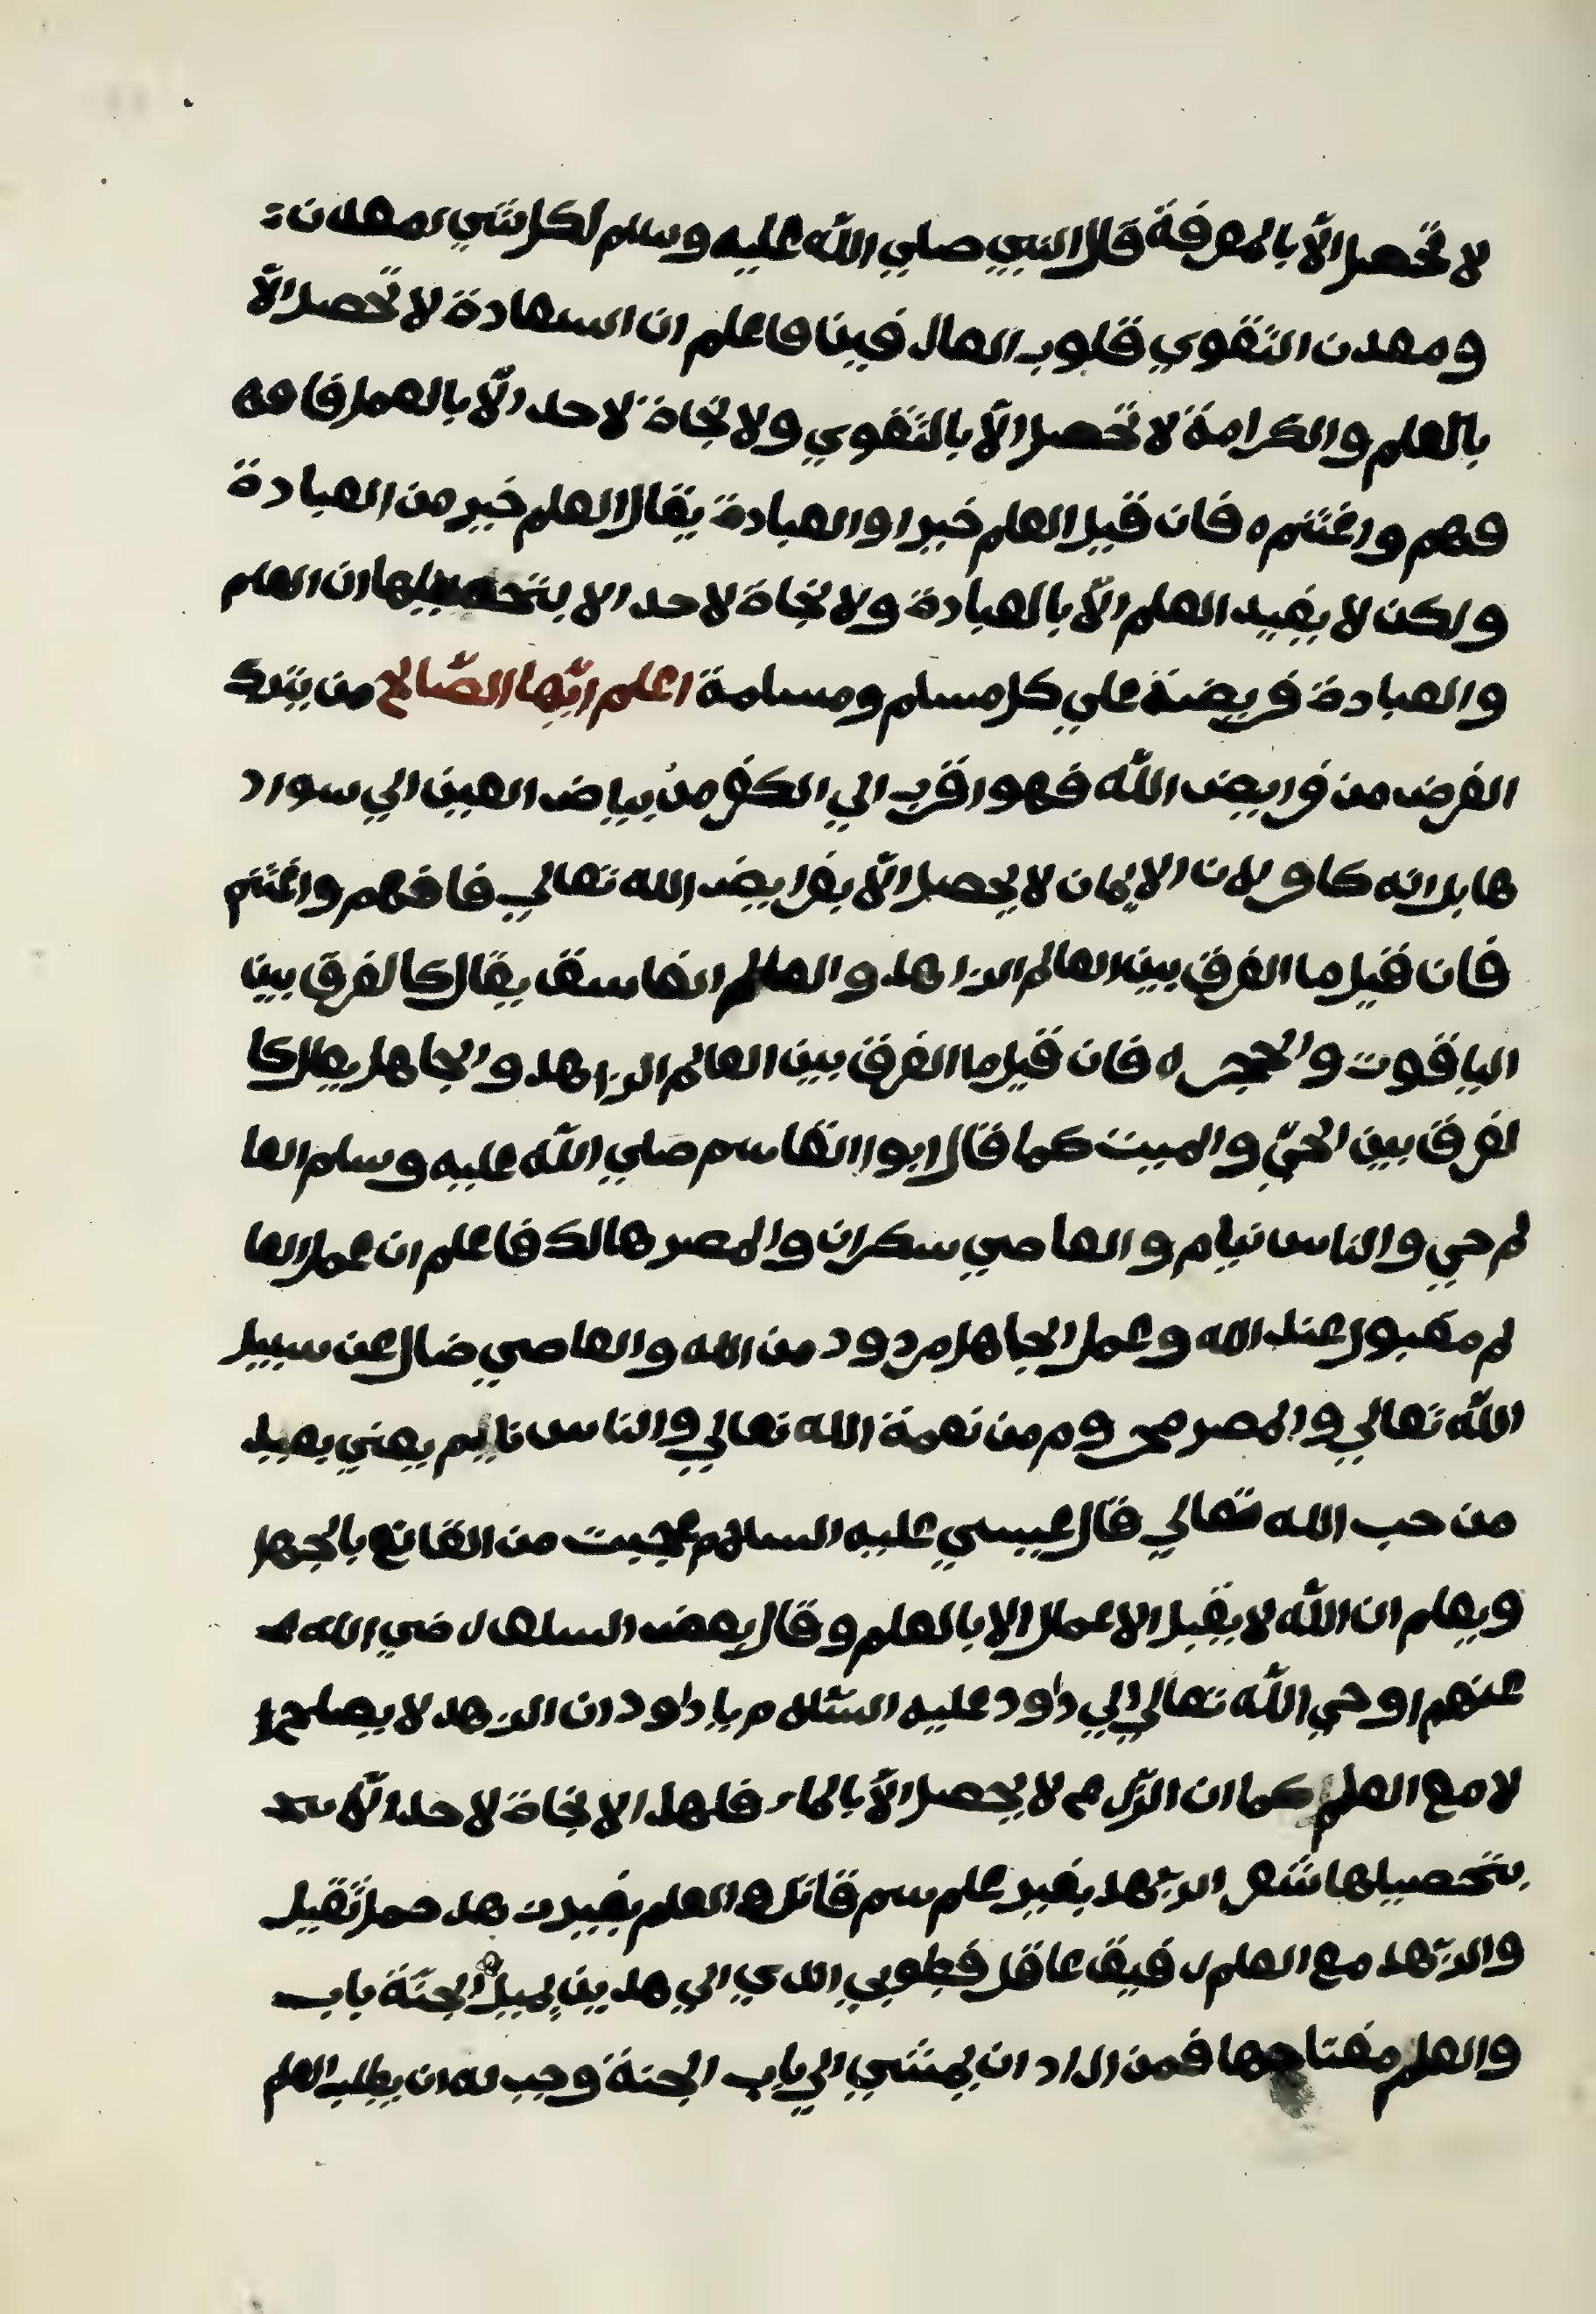 لا تحصل الّا بالمعرفة قال النبي صلي اللّه عليه وسلم لكل شيء معدن
ومعدن التقوي قلوب العارفينا فاعلم ان السعادة لا تحصل الّا
بالعلم والكرامة لا تحصل الّا بالتّقوي ولا نجاة لاحد الّا بالعمل فافه
فهم واغتنم ه فان قيل العلم خير او العبادة يقال العلم خير من العبادة
ولكن لا يفيد العلم الّا بالعبادة ولا نجاة لاحد الا بتحصيلها ان العلم
والعبادة فريضة علي كل مسلم ومسلمة اعلم ايّها الصّالح من يترك
الفرض من فرايض اللّه فهو اقرب الي الكفر من بياض العين الي سواد
ها بل انه كافر لان الايمان لا يحصل الّا بفرايض الله تعالي فافهم واغتنم
فان قيل ما الفرق بين العالم الزاهد والعالم الفاسق يقال كالفرق بين
الياقوت والحجر ه فان قيل ما الفرق بين العالم الزاهد والجاهل يقال كا
لفرق بين الحيّ والميت كما قال ابوا القاسم صلي اللّه عليه وسلم العا
لم حي والناس نيام والعاصي سكران والمصر هالك فاعلم ان عمل العا
لم مقبول عند الله وعمل الجاهل مردود من الله والعاصي ضال عن سبيل
اللّه تعالي والمصر محروم من نعمة الله تعالي والناس نايم يعني بعيد
من حب الله تعالي قال عيسي عليه السلام عجبت من القانع بالجهل
ويعلم ان اللّه لا يقبل الاعمال الا بالعلم وقال بعض السلف رضي الله عـ
عنهم اوحي اللّه تعالي الي داود عليه السّلام يا داود ان الزهد لا يصلح ا
لا مع العلم كما ان الزّرع لا يحصل الّا بالماء فلهذا لا نجاة لاحد الّا
بتحصيلها شعر الزّهد بغير علم سم قاتل والعلم بغير زهد حمل ثقيل
والزّهد مع العلم رفيق عاقل فطوبي الذي الي هذين يميل الجنّة باب
والعلم مفتاحها فمن اراد ان يمشي الي باب الجنة وجب له ان يطلب العلم